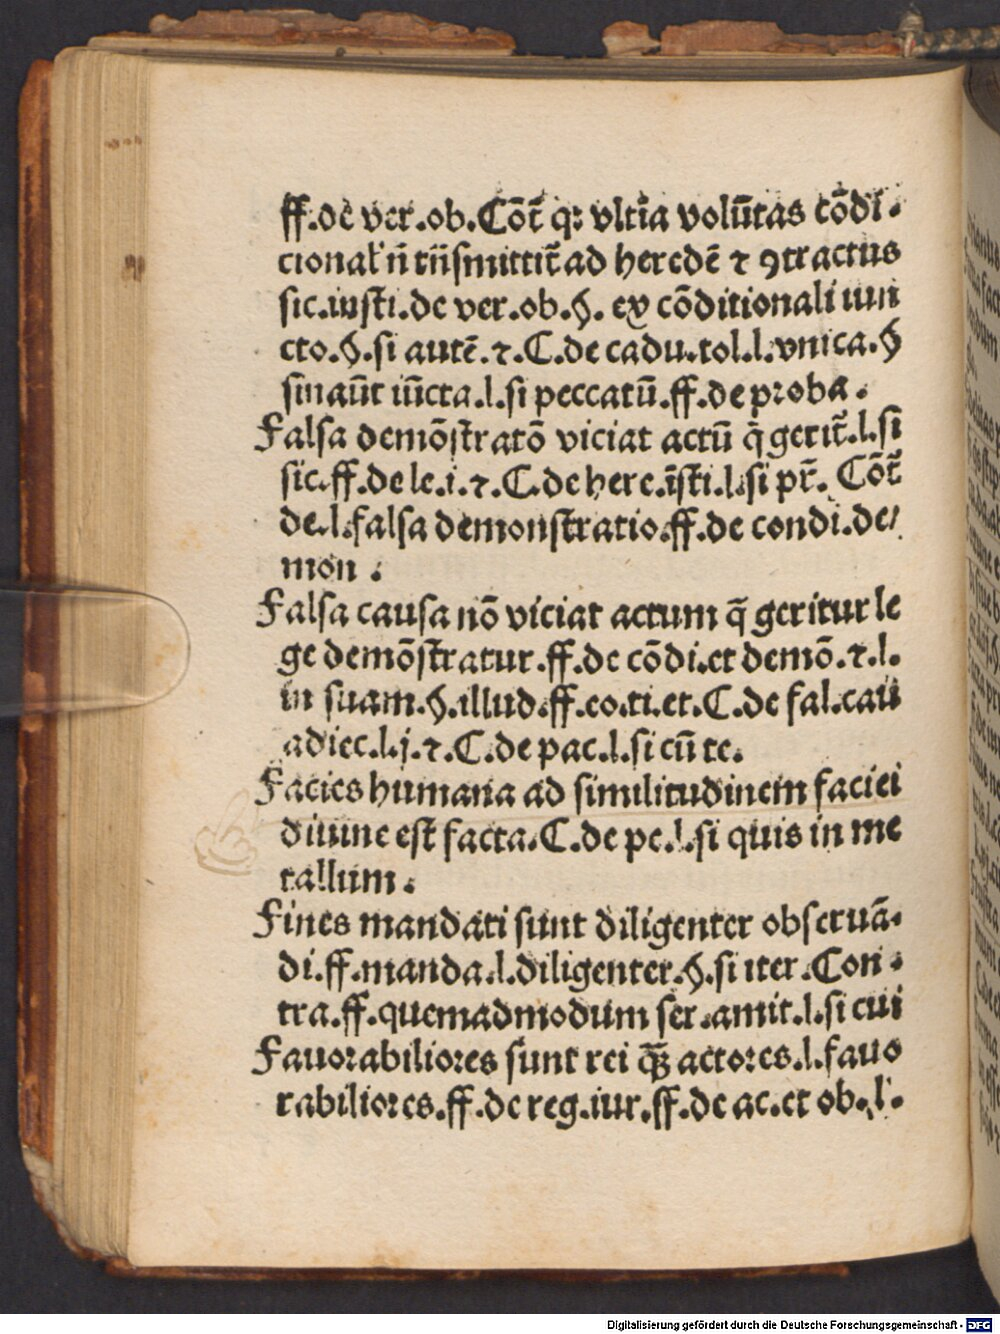 ff.de ver.ob.Cōt̄ qꝛ vltīa volūtas cōdi
cional' n̄ trāsmittit̄ ad heredē ⁊ ꝯtractus
sic.insti.de ver.ob.§. ex cōditionali iun
cto.§.si autē.⁊.C.de cadu.tol.l.vnica.§
sinaūt iūcta.l.si peccatū.ff.de proba.
Falsa demōstratō viciat actū q̄ gerit̄.l.si
sic.ff.de le.i.⁊.C.de here.īsti.l.si pr̄. Cōt̄
de.l.falsa demonstratio.ff.de condi.de/
mon.
Falsa causa nō viciat actum q̄ geritur le
ge demōstratur.ff.de cōdi.et demō.⁊.l.
in suam.§.illud.ff.eo.ti.et.C.de fal.cau
adiec.l.j.⁊.C.de pac.l.si cū te.
Facies humana ad similitudinem faciei
diuine est facta.C.de pe.l.si quis in me
tallum.
Fines mandati sunt diligenter obseruā
di.ff.manda.l.diligenter.§.si iter.Con
tra.ff.quemadmodum ser.amit.l.si cui
Fauorabiliores sunt rei qꝫ actores.l.fauo
rabiliores.ff.de reg.iur.ff.de ac.et ob.l.
Digitalisierung gefördert durch die Deutsche Forschungsgemeinschaft - DFG